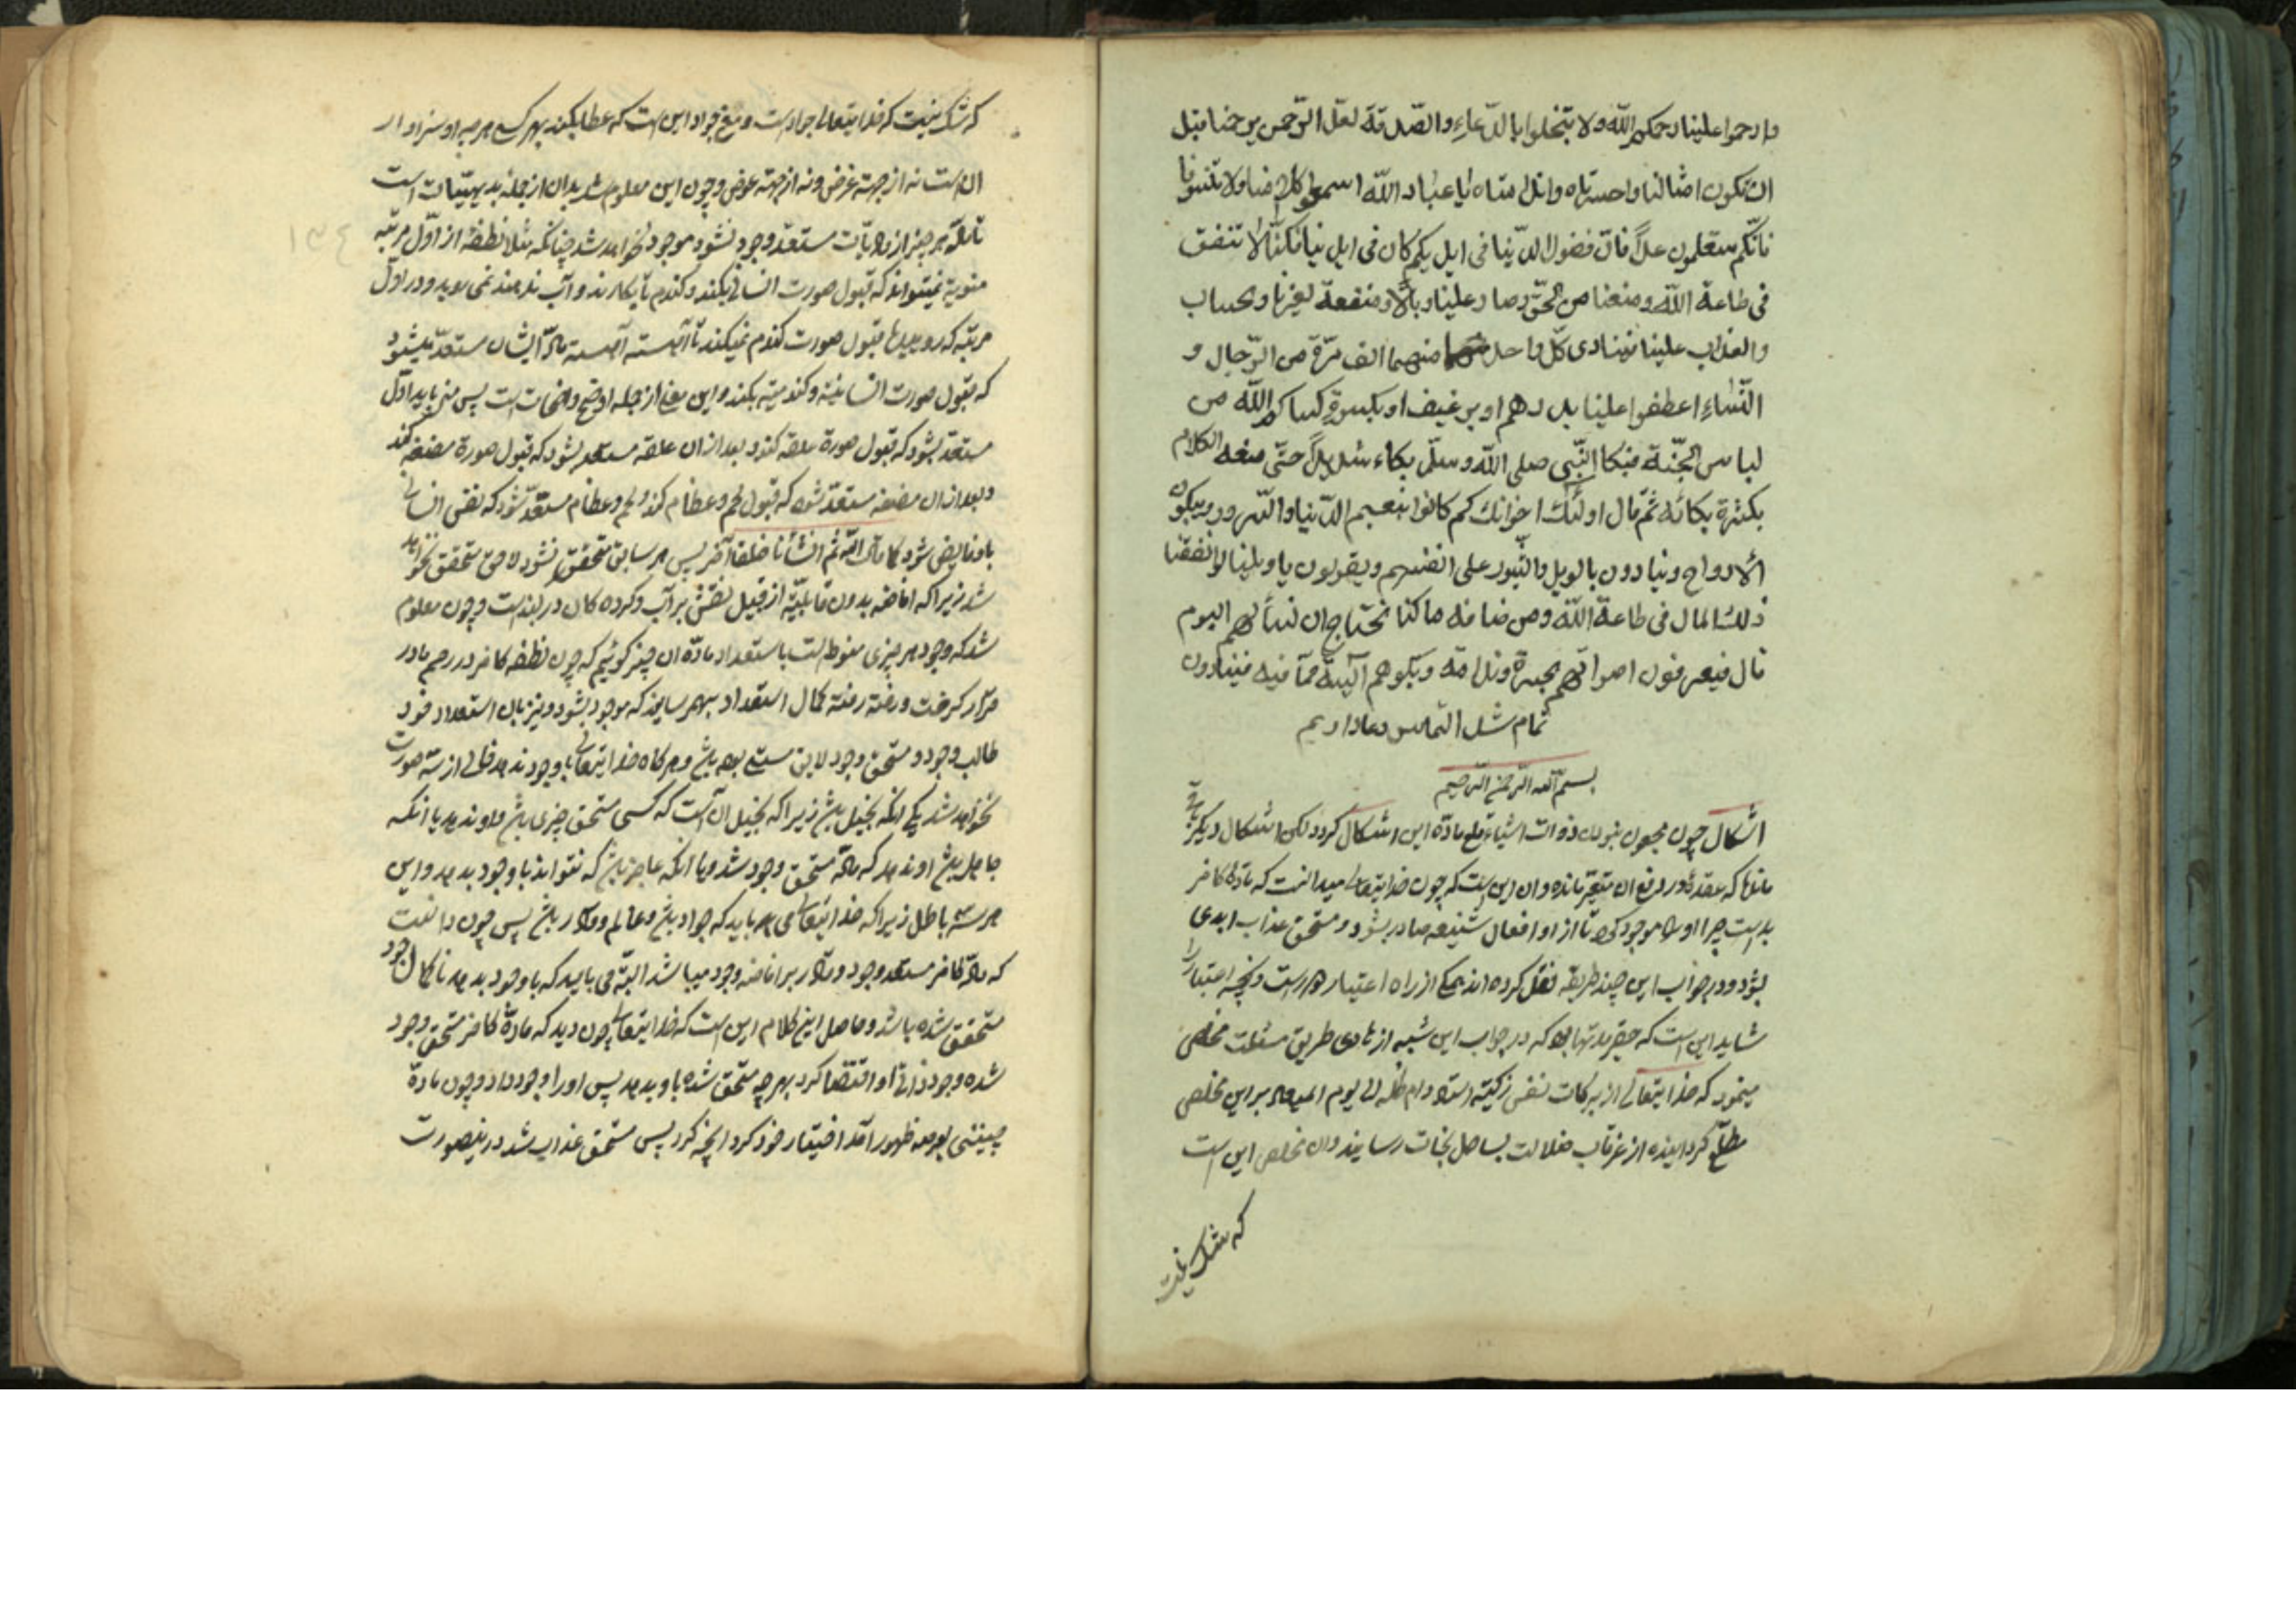 وارحموا علینا رحمکم الله ولا تبخلوا بالدعاء والصدقة لعل الرحمن یرحمنا قبل
ان تکون امثالنا واحسرتاه واندامتاه یا عباد الله اسمعوا کلامنا ولا تنسونا
فانکم ستعلمون غداً فان فضول الدنیا فی ایدیکم کان فی ایدینا فکنا لا ننفق
فی طاعة الله ومنعنا من الحق وصار علینا وبالاً ومنفعة لغیرنا والحساب
والعذاب علینا فینادی کل واحد منهما الف مرة من الرجال و
النساء اعطفوا علینا بدرهم او برغیف او بکسوة کساکم الله من
لباس الجنة فبکا النبی صلی الله وسلم بکاء شدیداً حتی منعه الکلام
بکثرة بکائه ثم قال اولئک اخوانک کم کانوا بنعیم الدنیا والسرور ویبکون
الارواح وینادون بالویل والثبور علی انفسهم ویقولون یا ویلینا لو انفقنا
ذلک المال فی طاعة الله ومن ضافه ما کنا نحتاج ان لنا لهم الیوم
قال فیعرفون اصواتهم بحسرة وندامة وبکوهم الیته مما فیه فینادون
تمام شد التماس دعا داریم
بسم الله الرحمن الرحیم
اشکال چون مجعول نبودن ذوات اشیاء قلع ماده این اشکال کرد و لکن اشکال دیگر باقی
ماندها که عقده در رفع ان متحیر مانده وان این است که چون خدایتعالی میدانست که ماده کافر
بد است چرا او را موجود کرد تا از او افعال شنیعه صادر بشود و مستحق عذاب ابدی
بشود و در جواب این چند طریقه نقل کرده اند یکی از راه اعتبار
شاید این است که حقیر مدتها بود که در جواب این شبهه از هادی طریق مسئلت مخلصی
مینمود که خدایتعالی از برکات نفس زکیه استاد دام ظله الی یوم المعاد بر این مخلص
مطلع گردانیده از غرقاب ضلالت بساحل نجات رسانید وان مخلص این است
که شک نیست
که شک نیست که خدایتعالی جواد است و معنی جواد این است که عطا بکند بهر کسی هر چه او سزاوار
ان است نه از جهة غرض و نه از جهة عوض و چون این معلوم شد بدان از جمله بدیهیات است
تا ماده هر چیز از مادیات مستعد وجود نشود موجود نخواهد شد چنانکه مثلا نطفه از اول مرتبه
منویة نمیتواند که قبول صورت انسانی بکند و گندم تا بکارند و آب ندهند نمی روید و در اول
مرتبه که روییدها قبول صورت گندم نمیکند تا آهسته آهسته ماده ایشان مستعد میشود
که قبول صورت انسانیه و گندمیه بکند و این معنی از جمله اوضح واضحات است پس منی باید اول
مستعد بشود که قبول صورة علقه کند و بعد از ان علقه مستعد بشود که قبول صورة مضغه کند
و بعد از ان مضغه مستعد شود که قبول لحم و عظام کند و لحم و عظام مستعد شود که نفس انسانی
باو فایض شود کما قال الله ثم انشأنا خلقا آخر پس هر سابق متحقق نشود لاحق متحقق نخواهد
شد زیرا که افاضه بدون قابلیة از قبیل نقش بر آب و گرده کان در است و چون معلوم
شد که وجود هر چیزی منوط است باستعداد ماده ان چیز گوئیم که چون نطفه کافر در رحم مادر
قرار گرفت و رفته رفته کمال استعداد بهم رسانید که موجود بشود و بزبان استعداد خود
طالب وجود و مستحق وجود لاین بوده باشد و هر گاه خدایتعالی باو وجود ندهد خالی از سه صورت
نخواهد شد یکی انکه بخیل باشد زیرا که بخیل ان است که کسی مستحق چیزی باشد و او ندهد یا انکه
جاهل باشد او نداند که ماده مستحق وجود شد و یا انکه عاجز باشد که نتواند باو وجود بدهد و این
هر سه باطل زیرا که خدایتعالی می باید که جواد باشد و عالم و قادر باشد پس چون دانست
که ماده کافر مستعد وجود و قادر بر افاضه وجود میباشد البته می باید که باو وجود بدهد تا کمال جود
متحقق شده باشد و حاصل این کلام این است که خدایتعالی چون دید که ماده کافر مستحق وجود
شده وجود ذاتی او اقتضا کرد بهر چه مستحق شده باو بدهد پس او را وجود داد و چون ماده
بعرصه ظهور آمد اختیار خود کرد آنچه کرد پس مستحق عذاب شد در اینصورت